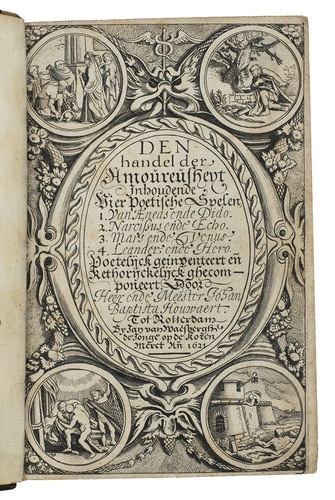 DEN
handel der
Amoureusheyt
Inhoudende
Vier Poetische Spelen
1. Van Æneas ende Dido.
2. Narcissus ende Echo.
3. Mars ende Venus.
4. Leander ende Hero.
Poetelijck geinventeert eñ
Rethorijckelijck ghecom-
poneert Door
Heer ende Meester Johan
Baptista Houwaert.
Tot Rotterdam
By Jan van Waesberghe
de Jonge op de Koren
Merct Añ 1621